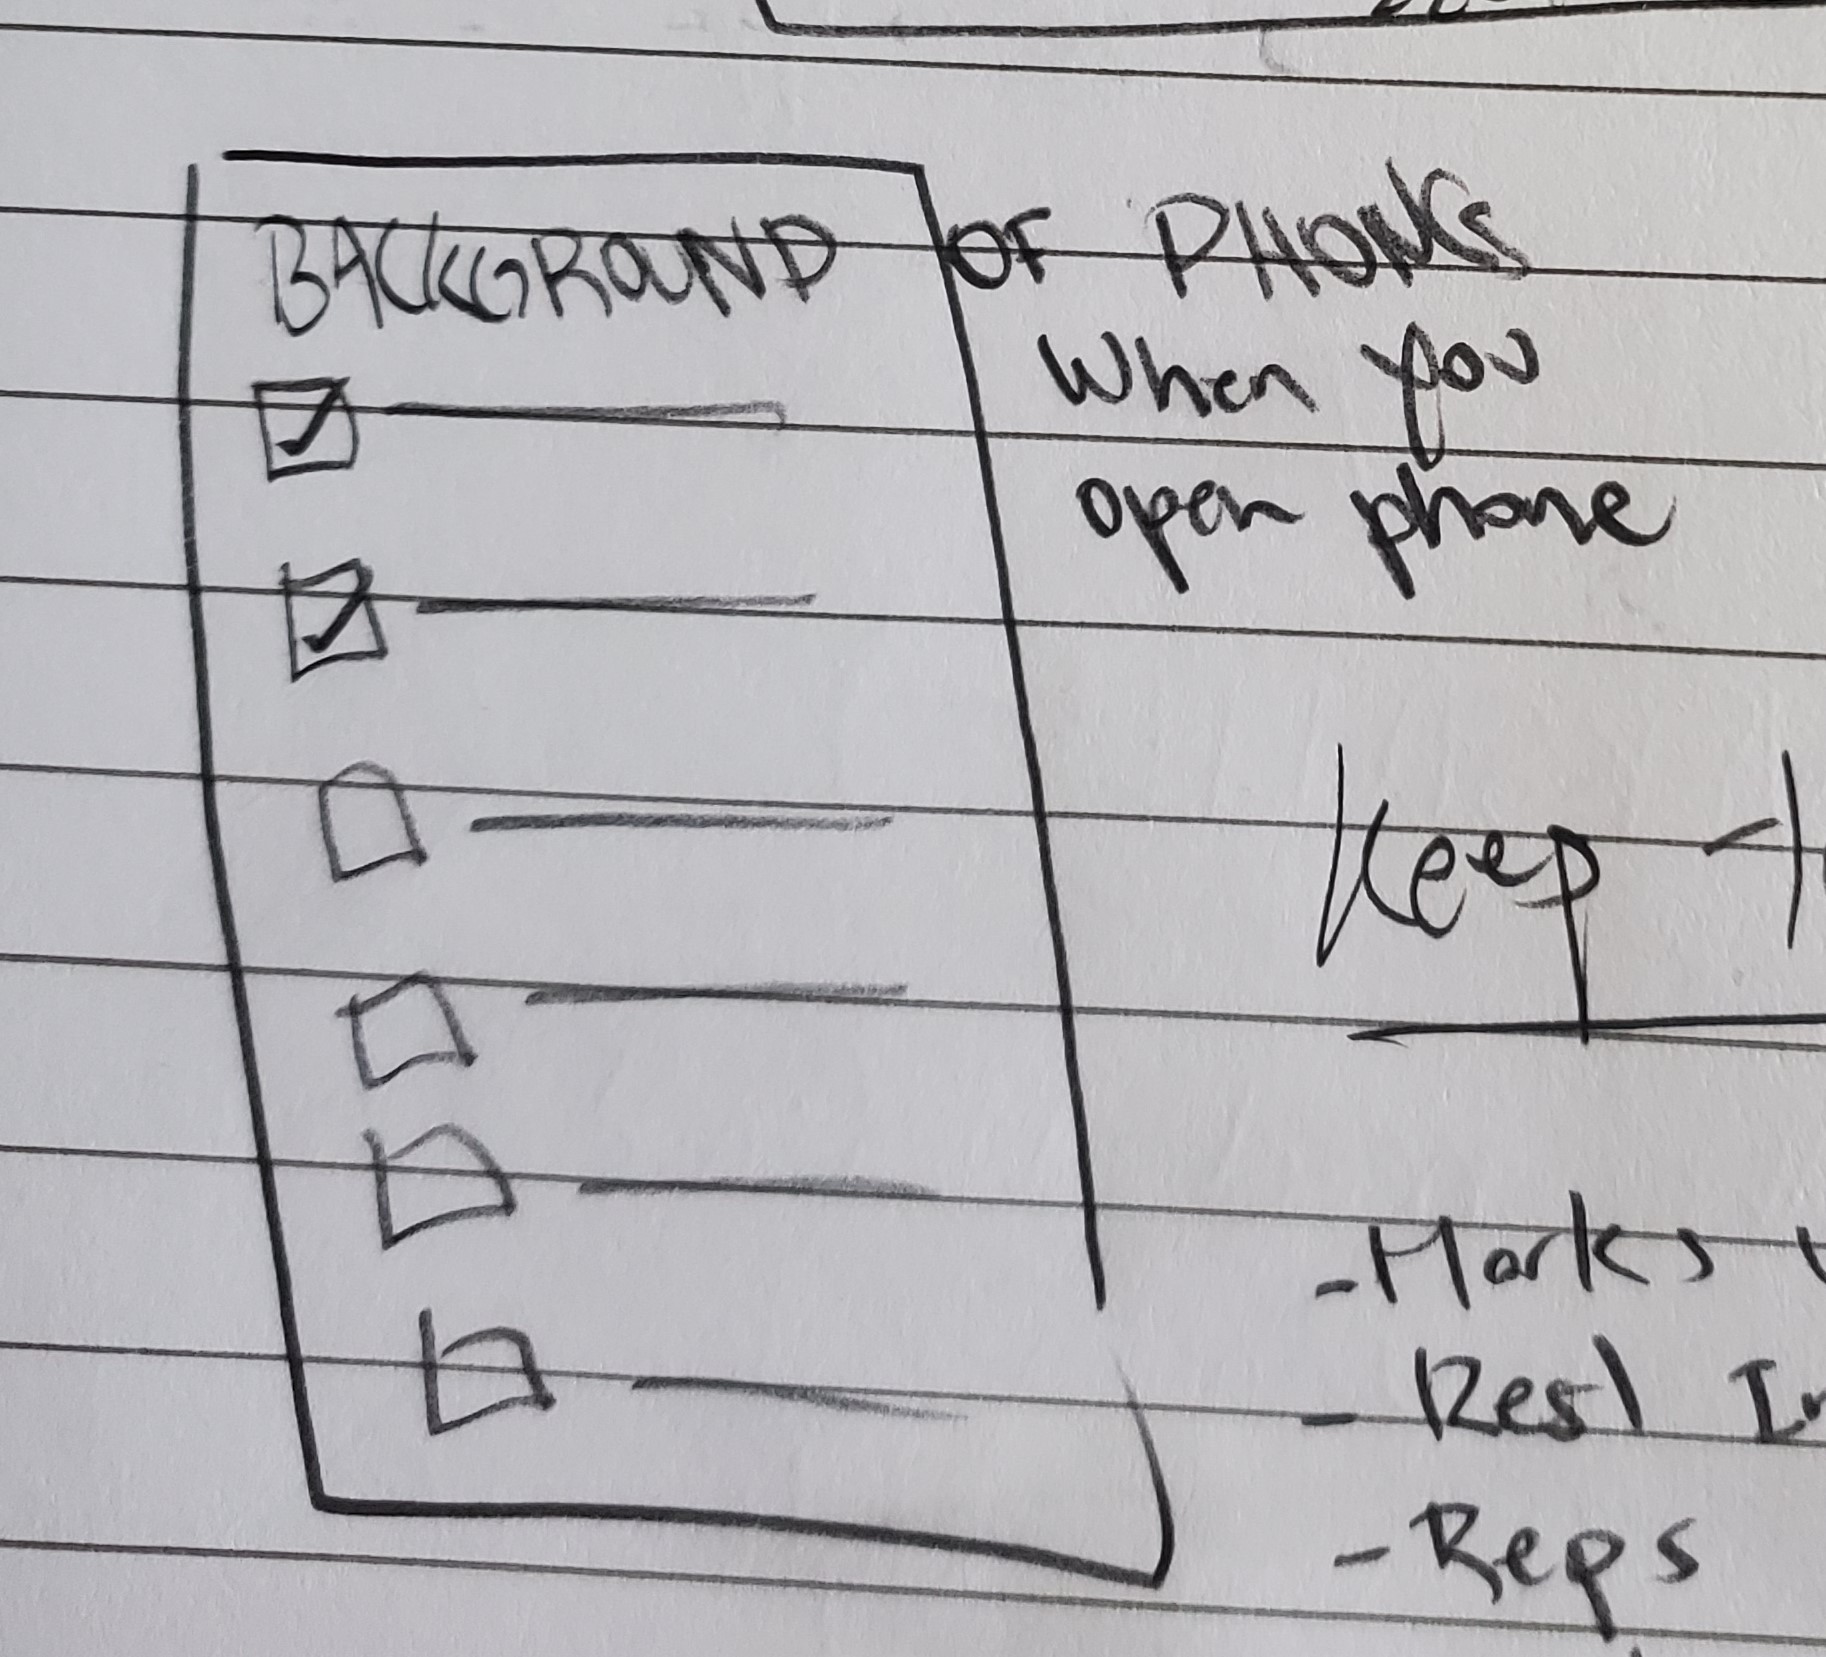 BACKGROUND OF PHONE
When you
open phone
Keep
- Marks
- Rest
- Reps